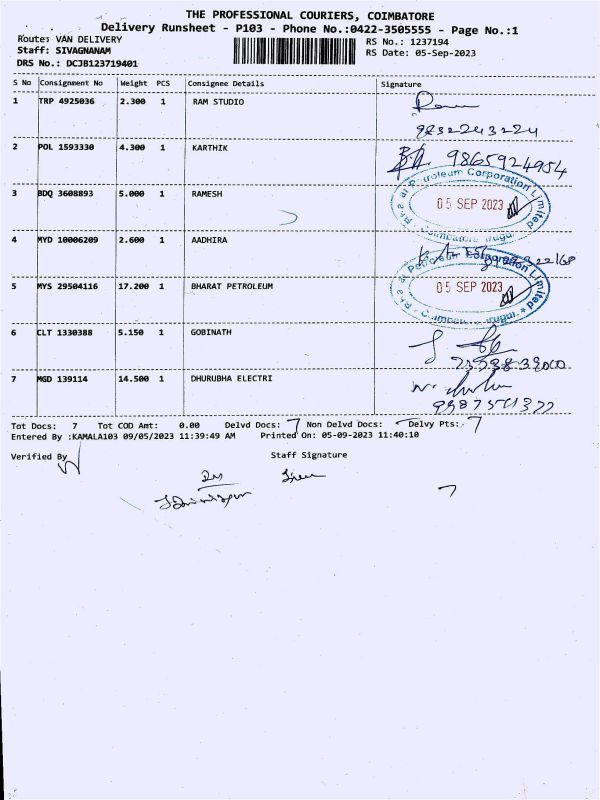 THE PROFESSIONAL COURIERS, COIMBATORE
Delivery Runsheet - P103 - Phone No.:0422-3505555 - Page No.:1
Route: VAN DELIVERY
RS No.: 1237194
Staff: SIVAGNANAM
RS Date: 05-Sep-2023
DRS No.: DCJB123719401
S No Consignment No Weight PCS Consignee Details Signature
1 TRP 4925036 2.300 1 RAM STUDIO
9232243224
2 POL 1593330 4.300 1 KARTHIK
9865924954
3 BDQ 3608893 5.000 1 RAMESH
Petroleum Corporation Limited
05 SEP 2023
4 MYD 10006209 2.600 1 AADHIRA
5 MYS 29504116 17.200 1 BHARAT PETROLEUM
Petroleum Corporation Limited
05 SEP 2023
6 CLT 1330388 5.150 1 GOBINATH
7 MGD 139114 14.500 1 DHURUBHA ELECTRI
Tot Docs: 7 Tot COD Amt: 0.00 Delvd Docs: 7 Non Delvd Docs: Delvy Pts: 7
Entered By :KAMALA103 09/05/2023 11:39:49 AM Printed On: 05-09-2023 11:40:10
Verified By
Staff Signature
7